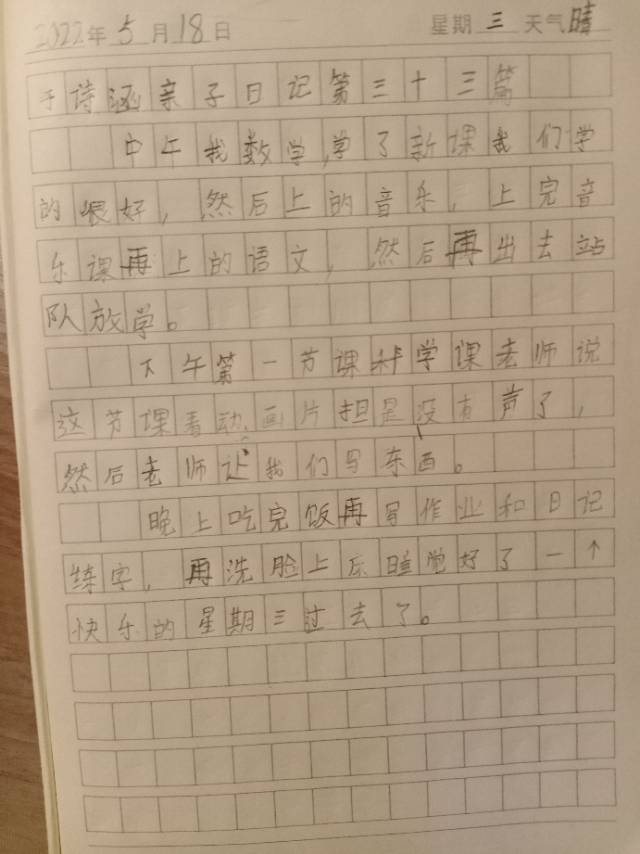 2022年5月18日 星期三 天气晴
于诗涵亲子日记第三十三篇
中午我数学,学了新课我们学
的很好，然后上的音乐，上完音
乐课再上的语文，然后再出去站
队放学。
下午第一节课科学课老师说
这节课看动画片担是没有声了，
然后老师让我们写东西。
晚上吃完饭再写作业和日记
练字，再洗脸上床睡觉好了一个
快乐的星期三过去了。